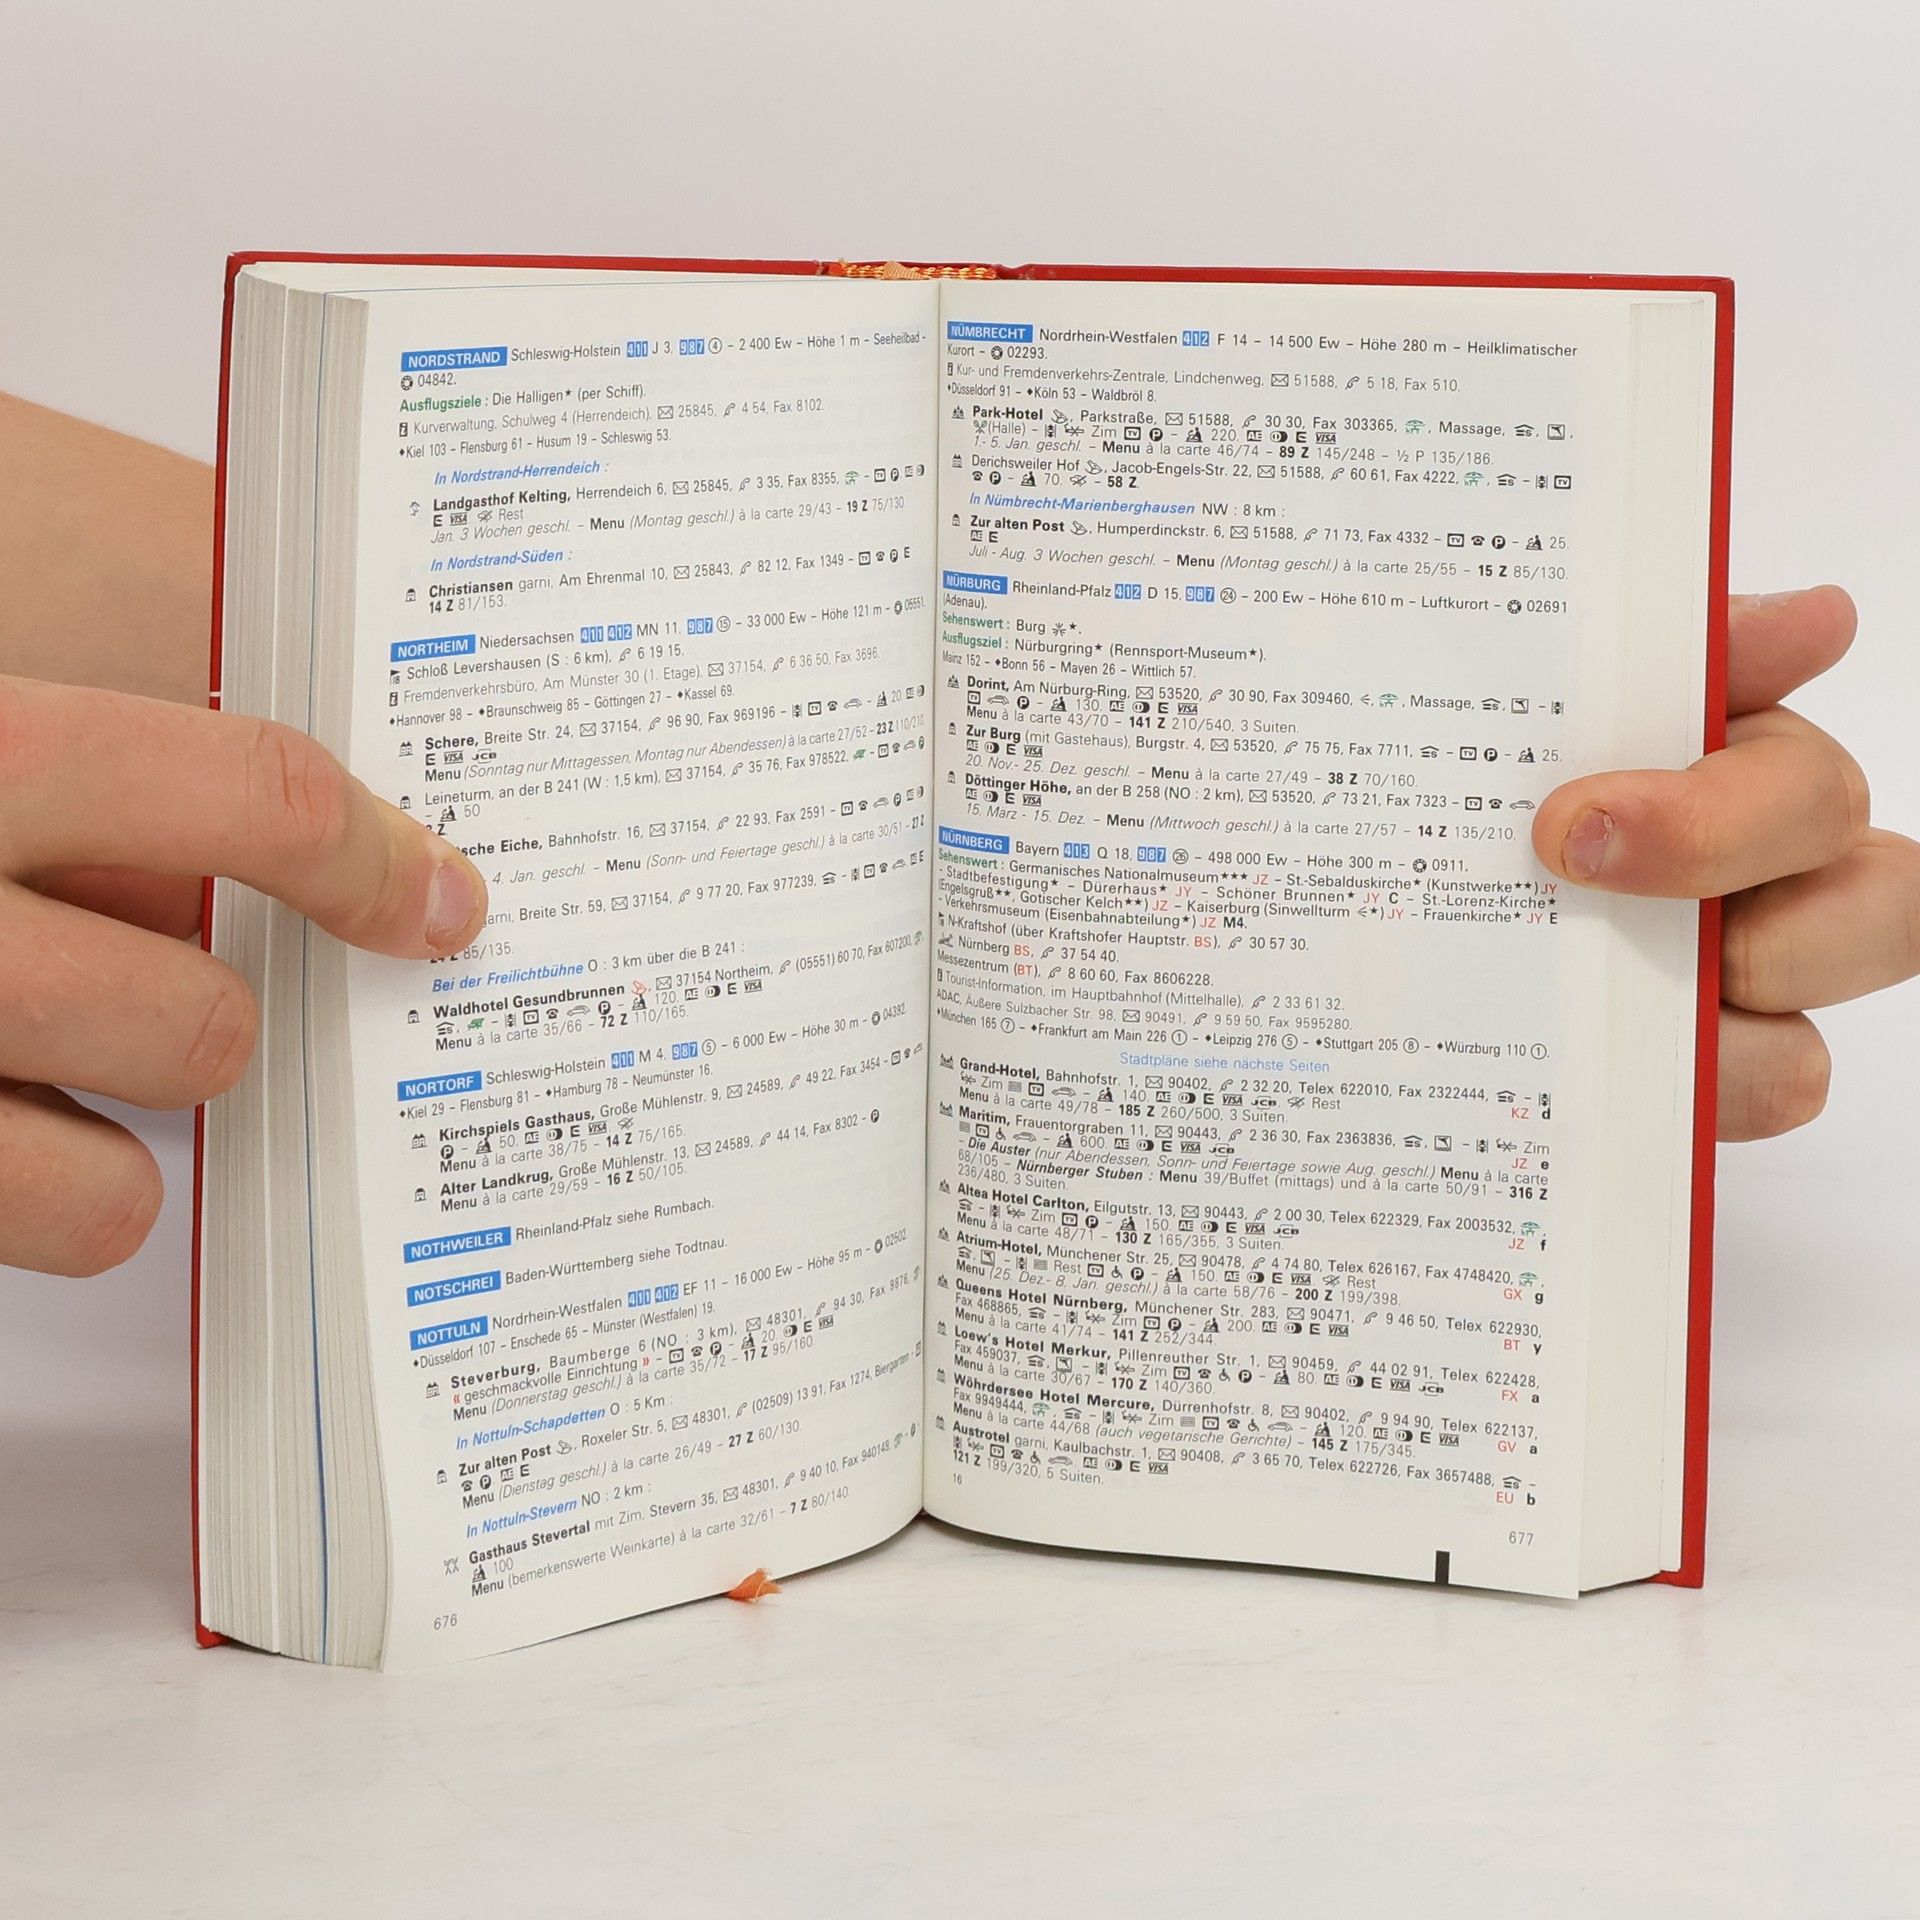 NORDSTRAND Schleswig-Holstein 411 J 3, 987 ④ – 2 400 Ew – Höhe 1 m – Seeheilbad –
04842.
Ausflugsziele : Die Halligen★ (per Schiff).
Kurverwaltung, Schulweg 4 (Herrendeich), ✉ 25845, ✆ 4 54, Fax 8102.
♦Kiel 103 – Flensburg 61 – Husum 19 – Schleswig 53.
In Nordstrand-Herrendeich :
Landgasthof Kelting, Herrendeich 6, ✉ 25845, ✆ 3 35, Fax 8355, – TV P. AE
E VISA Rest
Jan. 3 Wochen geschl. – Menu (Montag geschl.) à la carte 29/43 – 19 Z 75/130.
In Nordstrand-Süden :
Christiansen garni, Am Ehrenmal 10, ✉ 25843, ✆ 82 12, Fax 1349 – TV ☎ P E
14 Z 81/153.
NORTHEIM Niedersachsen 411 412 MN 11, 987 ⑮ – 33 000 Ew – Höhe 121 m – 05551.
18 Schloß Levershausen (S : 6 km), ✆ 6 19 15.
Fremdenverkehrsbüro, Am Münster 30 (1. Etage), ✉ 37154, ✆ 6 36 50, Fax 3696.
♦Hannover 98 – ♦Braunschweig 85 – Göttingen 27 – ♦Kassel 69.
Schere, Breite Str. 24, ✉ 37154, ✆ 96 90, Fax 969196 – TV ☎ – 20. AE
E VISA JCB
Menu (Sonntag nur Mittagessen, Montag nur Abendessen) à la carte 27/52 – 23 Z 110/210.
Leineturm, an der B 241 (W : 1,5 km), ✉ 37154, ✆ 35 76, Fax 978522, – TV ☎ P
– 50
Z
sche Eiche, Bahnhofstr. 16, ✉ 37154, ✆ 22 93, Fax 2591 – TV ☎ P AE
4. Jan. geschl. – Menu (Sonn- und Feiertage geschl.) à la carte 30/51 – 27 Z
arni, Breite Str. 59, ✉ 37154, ✆ 9 77 20, Fax 977239, – TV ☎ AE E
85/135.
Bei der Freilichtbühne O : 3 km über die B 241 :
Waldhotel Gesundbrunnen , ✉ 37154 Northeim, ✆ (05551) 60 70, Fax 607200,
– TV ☎ P – 120. AE E VISA
Menu à la carte 35/66 – 72 Z 110/165.
NORTORF Schleswig-Holstein 411 M 4, 987 ⑤ – 6 000 Ew – Höhe 30 m – 04392.
♦Kiel 29 – Flensburg 81 – ♦Hamburg 78 – Neumünster 16.
Kirchspiels Gasthaus, Große Mühlenstr. 9, ✉ 24589, ✆ 49 22, Fax 3454 – TV ☎
P – 50. AE E VISA
Menu à la carte 38/75 – 14 Z 75/165.
Alter Landkrug, Große Mühlenstr. 13, ✉ 24589, ✆ 44 14, Fax 8302 – P
Menu à la carte 29/59 – 16 Z 50/105.
NOTHWEILER Rheinland-Pfalz siehe Rumbach.
NOTSCHREI Baden-Württemberg siehe Todtnau.
NOTTULN Nordrhein-Westfalen 411 412 EF 11 – 16 000 Ew – Höhe 95 m – 02502.
♦Düsseldorf 107 – Enschede 65 – Münster (Westfalen) 19.
Steverburg, Baumberge 6 (NO : 3 km), ✉ 48301, ✆ 94 30, Fax 9876,
« geschmackvolle Einrichtung » – TV ☎ P – 20. E VISA
Menu (Donnerstag geschl.) à la carte 35/72 – 17 Z 95/160
In Nottuln-Schapdetten O : 5 Km :
Zur alten Post , Roxeler Str. 5, ✉ 48301, ✆ (02509) 13 91, Fax 1274, Biergarten –
☎ P. AE E
Menu (Dienstag geschl.) à la carte 26/49 – 27 Z 60/130.
In Nottuln-Stevern NO : 2 km :
Gasthaus Stevertal mit Zim, Stevern 35, ✉ 48301, ✆ 9 40 10, Fax 940149, – P
100
Menu (bemerkenswerte Weinkarte) à la carte 32/61 – 7 Z 80/140.
676
NÜMBRECHT Nordrhein-Westfalen 412 F 14 – 14 500 Ew – Höhe 280 m – Heilklimatischer
Kurort – 02293.
Kur- und Fremdenverkehrs-Zentrale, Lindchenweg, ✉ 51588, ✆ 5 18, Fax 510.
♦Düsseldorf 91 – ♦Köln 53 – Waldbröl 8.
Park-Hotel , Parkstraße, ✉ 51588, ✆ 30 30, Fax 303365, , Massage, , ,
(Halle) – Zim TV P – 220. AE E VISA
1.- 5. Jan. geschl. – Menu à la carte 46/74 – 89 Z 145/248 – ½ P 135/186.
Derichsweiler Hof , Jacob-Engels-Str. 22, ✉ 51588, ✆ 60 61, Fax 4222, , – TV
☎ P – 70. – 58 Z.
In Nümbrecht-Marienberghausen NW : 8 km :
Zur alten Post , Humperdinckstr. 6, ✉ 51588, ✆ 71 73, Fax 4332 – TV ☎ P – 25.
AE E
Juli - Aug. 3 Wochen geschl. – Menu (Montag geschl.) à la carte 25/55 – 15 Z 85/130.
NÜRBURG Rheinland-Pfalz 412 D 15, 987 ㉔ – 200 Ew – Höhe 610 m – Luftkurort – 02691
(Adenau).
Sehenswert : Burg ★.
Ausflugsziel : Nürburgring★ (Rennsport-Museum★).
Mainz 152 – ♦Bonn 56 – Mayen 26 – Wittlich 57.
Dorint, Am Nürburg-Ring, ✉ 53520, ✆ 30 90, Fax 309460, ≤, , Massage, , –
TV P – 130. AE E VISA
Menu à la carte 43/70 – 141 Z 210/540, 3 Suiten.
Zur Burg (mit Gästehaus), Burgstr. 4, ✉ 53520, ✆ 75 75, Fax 7711, – TV P – 25.
AE E VISA
20. Nov.- 25. Dez. geschl. – Menu à la carte 27/49 – 38 Z 70/160.
Döttinger Höhe, an der B 258 (NO : 2 km), ✉ 53520, ✆ 73 21, Fax 7323 – TV ☎
AE E VISA
15. März - 15. Dez. – Menu (Mittwoch geschl.) à la carte 27/57 – 14 Z 135/210.
NÜRNBERG Bayern 413 Q 18, 987 ㉖ – 498 000 Ew – Höhe 300 m – 0911.
Sehenswert : Germanisches Nationalmuseum★★★ JZ – St.-Sebalduskirche★ (Kunstwerke★★) JY
- Stadtbefestigung★ – Dürerhaus★ JY – Schöner Brunnen★ JY C – St.-Lorenz-Kirche★
(Engelsgruß★★, Gotischer Kelch★★) JZ – Kaiserburg (Sinwellturm ≤★) JY – Frauenkirche★ JY E
- Verkehrsmuseum (Eisenbahnabteilung★) JZ M4.
N-Kraftshof (über Kraftshofer Hauptstr. BS), ✆ 30 57 30.
Nürnberg BS, ✆ 37 54 40.
Messezentrum (BT), ✆ 8 60 60, Fax 8606228.
Tourist-Information, im Hauptbahnhof (Mittelhalle), ✆ 2 33 61 32.
ADAC, Äußere Sulzbacher Str. 98, ✉ 90491, ✆ 9 59 50, Fax 9595280.
♦München 165 ⑦ – ♦Frankfurt am Main 226 ① – ♦Leipzig 276 ⑤ – ♦Stuttgart 205 ⑧ – ♦Würzburg 110 ①.
Stadtpläne siehe nächste Seiten
Grand-Hotel, Bahnhofstr. 1, ✉ 90402, ✆ 2 32 20, Telex 622010, Fax 2322444, –
Zim TV – 140. AE E VISA JCB Rest
Menu à la carte 49/78 – 185 Z 260/500, 3 Suiten. KZ d
Maritim, Frauentorgraben 11, ✉ 90443, ✆ 2 36 30, Fax 2363836, , – Zim
TV – 600. AE E VISA JCB JZ e
- Die Auster (nur Abendessen, Sonn- und Feiertage sowie Aug. geschl.) Menu à la carte
68/105 – Nürnberger Stuben : Menu 39/Buffet (mittags) und à la carte 50/91 – 316 Z
236/480, 3 Suiten.
Altea Hotel Carlton, Eilgutstr. 13, ✉ 90443, ✆ 2 00 30, Telex 622329, Fax 2003532, ,
– Zim TV P – 150. AE E VISA JCB
Menu à la carte 48/71 – 130 Z 165/355, 3 Suiten. JZ f
Atrium-Hotel, Münchener Str. 25, ✉ 90478, ✆ 4 74 80, Telex 626167, Fax 4748420, ,
– Rest TV P – 150. AE E VISA Rest
Menu (25. Dez.- 8. Jan. geschl.) à la carte 58/76 – 200 Z 199/398. GX g
Queens Hotel Nürnberg, Münchener Str. 283, ✉ 90471, ✆ 9 46 50, Telex 622930,
Fax 468865, – Zim TV P – 200. AE E VISA
Menu à la carte 41/74 – 141 Z 252/344. BT y
Loew's Hotel Merkur, Pillenreuther Str. 1, ✉ 90459, ✆ 44 02 91, Telex 622428,
Fax 459037, , – Zim TV ☎ P – 80. AE E VISA JCB
Menu à la carte 30/67 – 170 Z 140/360. FX a
Wöhrdersee Hotel Mercure, Dürrenhofstr. 8, ✉ 90402, ✆ 9 94 90, Telex 622137,
Fax 9949444, , – Zim TV ☎ – 120. AE E VISA
Menu à la carte 44/68 (auch vegetarische Gerichte) – 145 Z 175/345. GV a
Austrotel garni, Kaulbachstr. 1, ✉ 90408, ✆ 3 65 70, Telex 622726, Fax 3657488, –
TV ☎ AE E VISA
121 Z 199/320, 5 Suiten. EU b
16
677